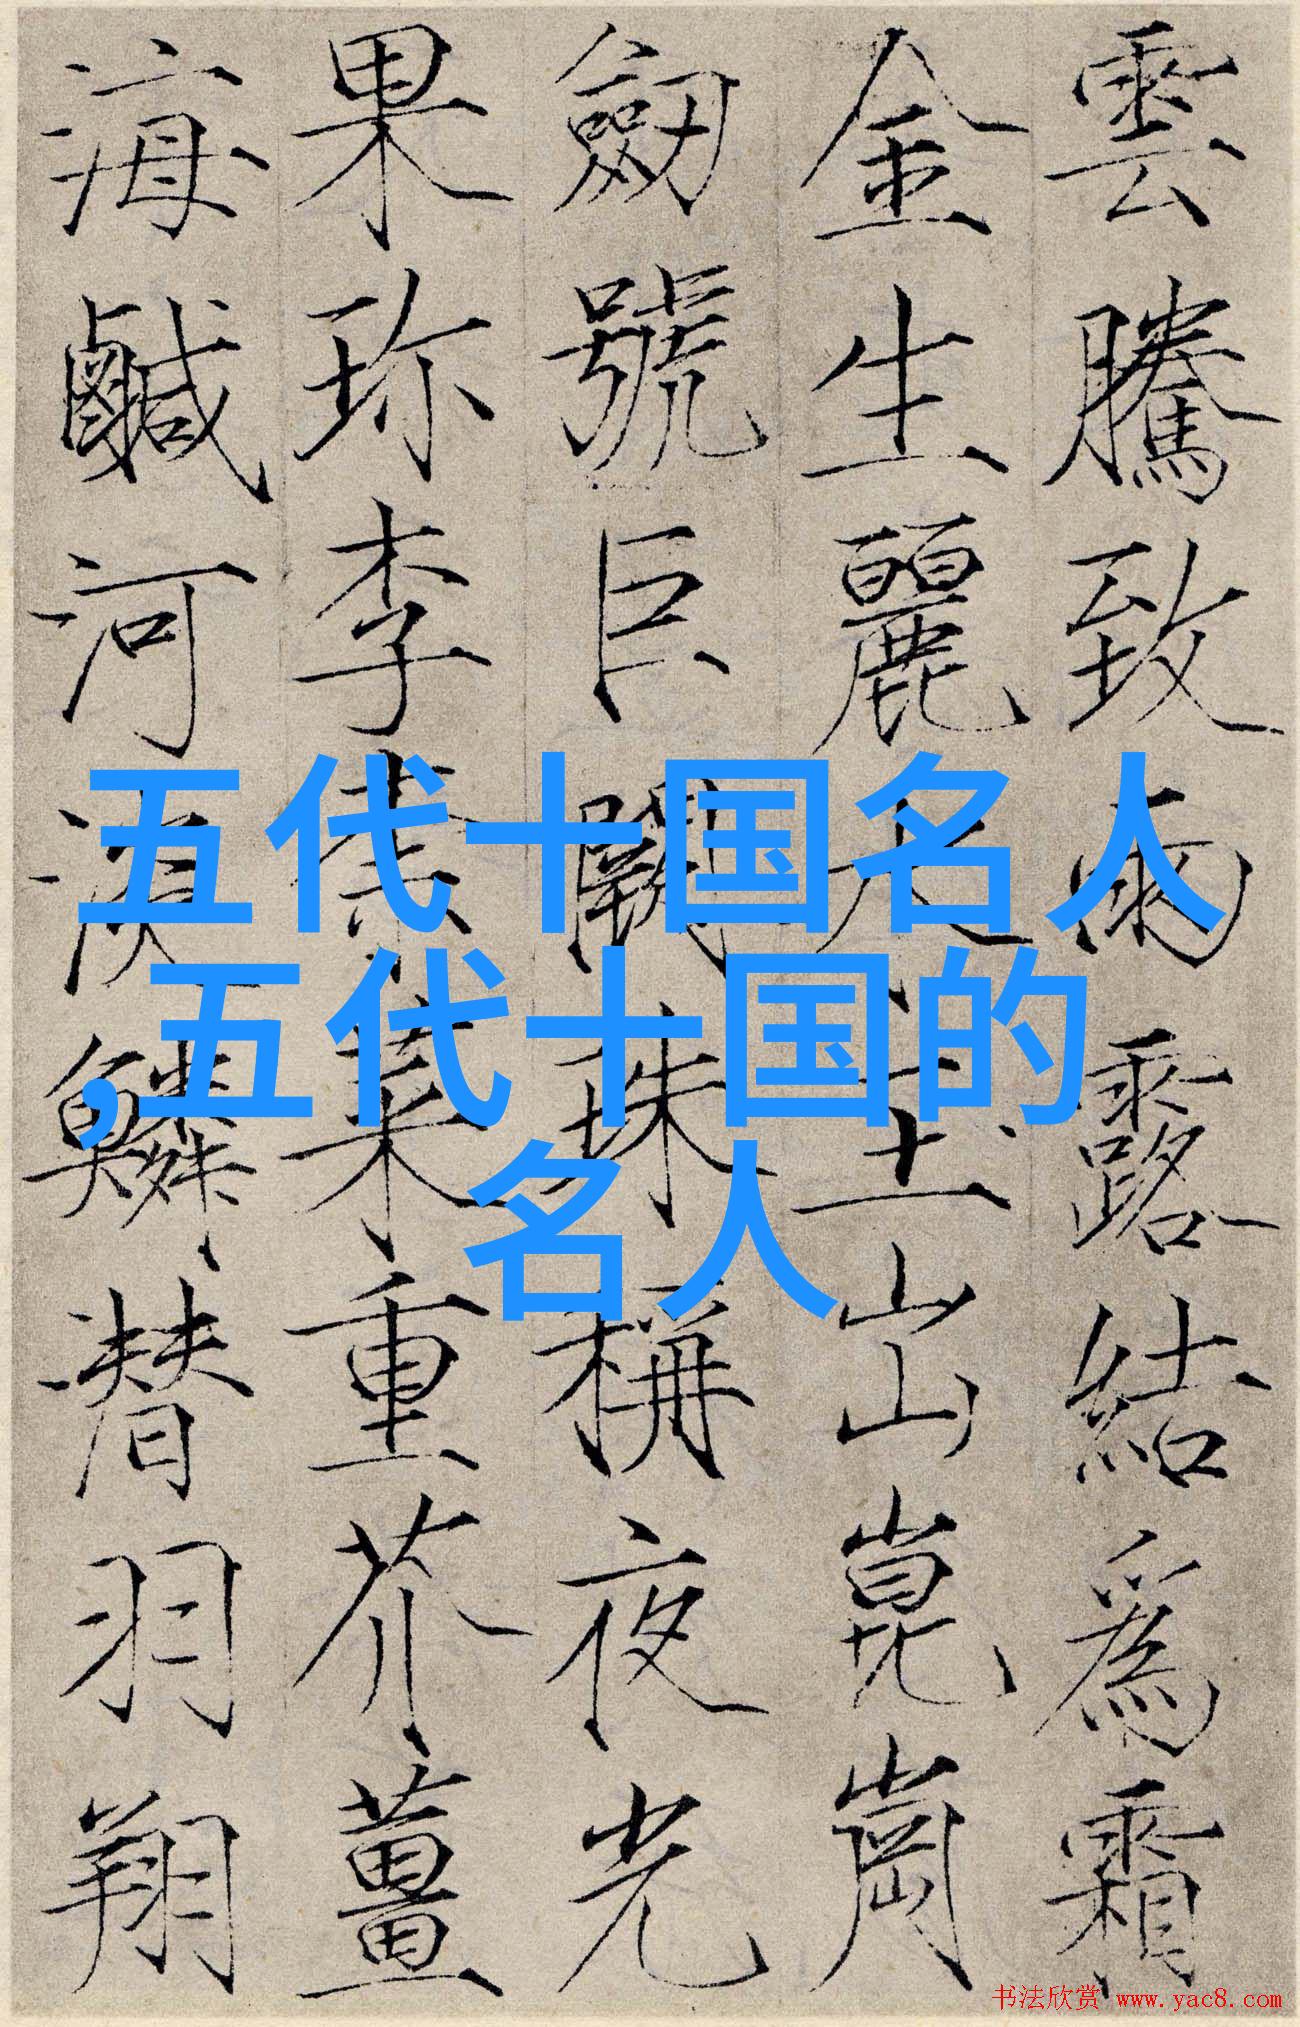 雲騰致雨露結爲霜
金生麗水玉出崑崗
劒號巨闕珠稱夜光
果珎李柰菜重芥薑
海鹹河淡鱗潜羽翔
五代十国名人
,五代十国的
名人
书法欣赏 www.yac8.com